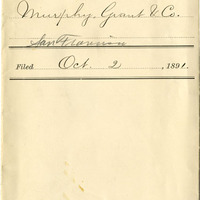 Murphy, Grant & Co.
San Francisco
Filed Oct. 2, 1891.